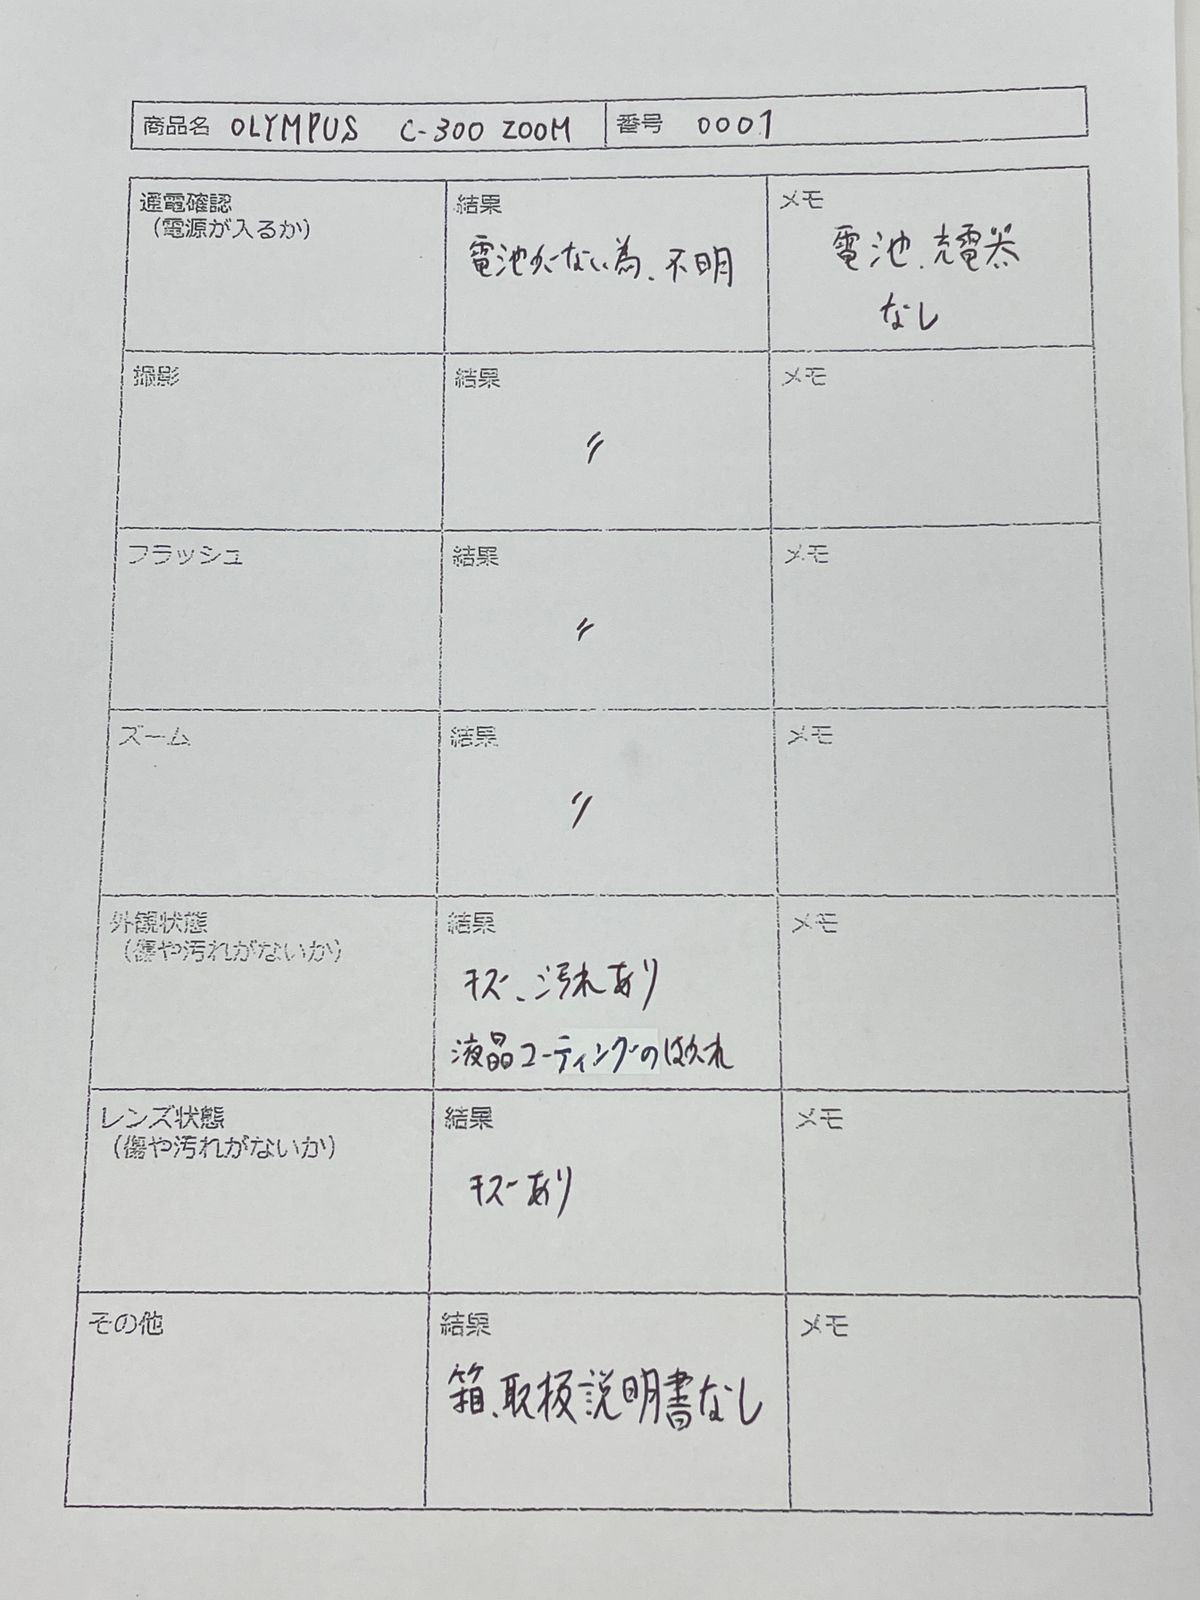 商品名 OLYMPUS C-300 ZOOM 番号 0001
通電確認 結果 メモ
（電源が入るか）
電池がない為、不明 電池、充電器
なし
撮影 結果 メモ
〃
フラッシュ 結果 メモ
〃
ズーム 結果 メモ
〃
外観状態 結果 メモ
（傷や汚れがないか）
キズ、汚れあり
液晶コーティングのはがれ
レンズ状態 結果 メモ
（傷や汚れがないか）
キズあり
その他 結果 メモ
箱、取扱説明書なし